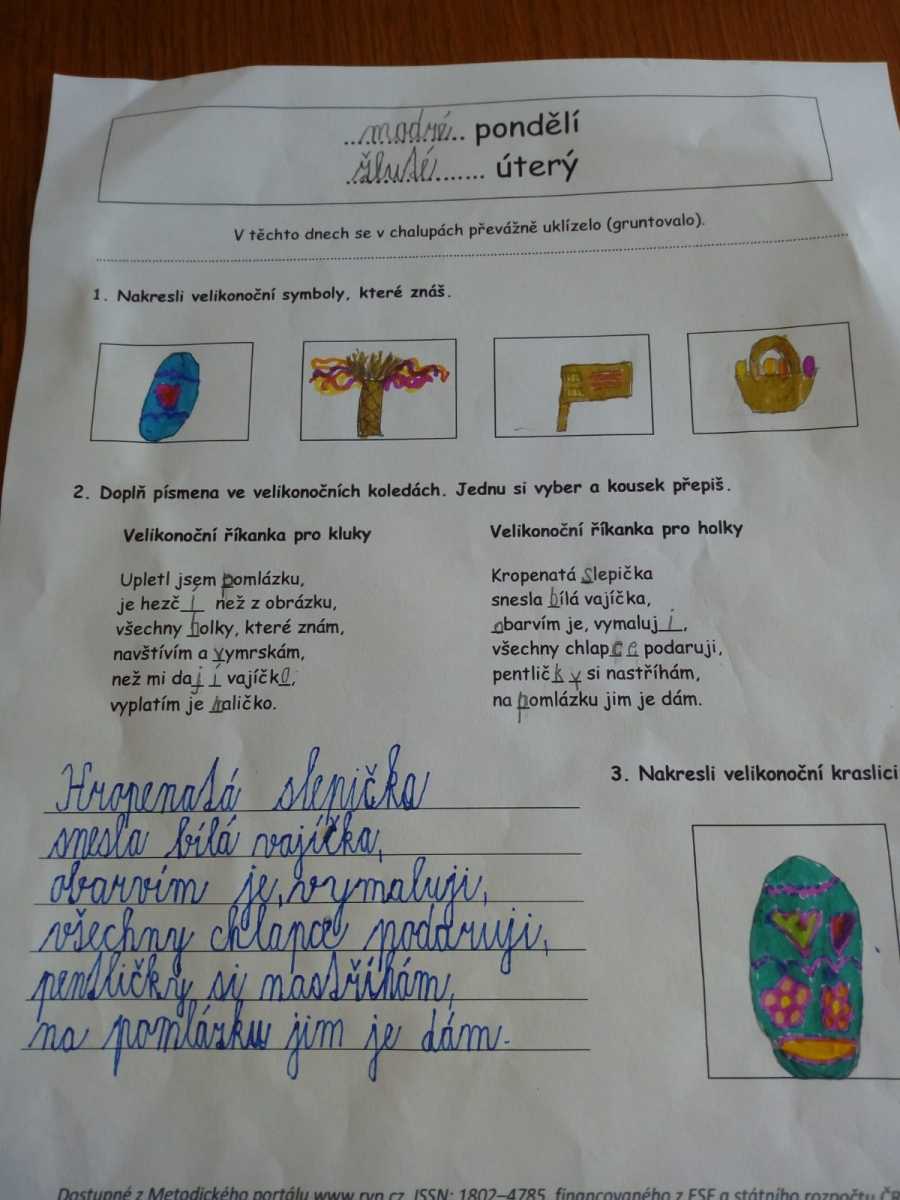 ...modré.. pondělí
.žluté....... úterý
V těchto dnech se v chalupách převážně uklízelo (gruntovalo).
1. Nakresli velikonoční symboly, které znáš.
2. Doplň písmena ve velikonočních koledách. Jednu si vyber a kousek přepiš.
Velikonoční říkanka pro kluky
Upletl jsem pomlázku,
je hezčí než z obrázku,
všechny holky, které znám,
navštívím a vymrskám,
než mi dají vajíčko,
vyplatím je maličko.
Velikonoční říkanka pro holky
Kropenatá slepička
snesla bílá vajíčka,
obarvím je, vymaluji,
všechny chlapce podaruji,
pentličky si nastříhám,
na pomlázku jim je dám.
Kropenatá slepička
snesla bílá vajíčka,
obarvím je, vymaluji,
všechny chlapce podaruji,
pentličky si nastříhám,
na pomlázku jim je dám.
3. Nakresli velikonoční kraslici
Dostupné z Metodického portálu www.rvp.cz, ISSN: 1802–4785, financovaného z ESF a státního rozpočtu ČR